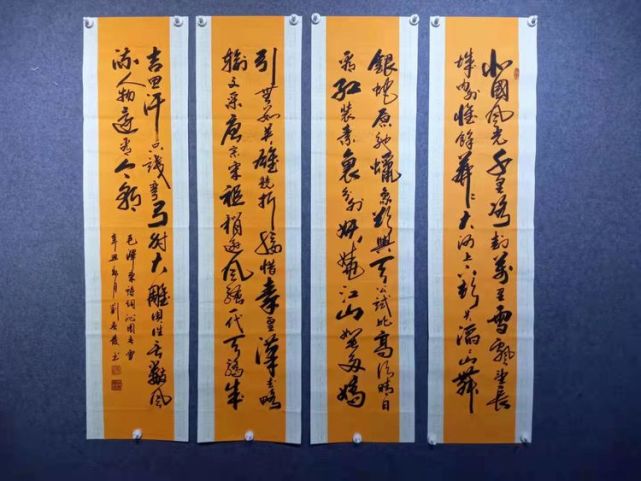 北國風光千里冰封萬里雪飄望長
城内外惟餘莽莽大河上下頓失滔滔山舞
銀蛇原馳蠟象欲與天公試比高須晴日
看紅裝素裹分外妖嬈江山如此多嬌
引無數英雄競折腰惜秦皇漢武略
輸文采唐宗宋祖稍遜風騷一代天驕成
吉思汗只識彎弓射大雕俱往矣數風
流人物還看今朝
毛澤東詩詞沁園春雪
辛丑年月劉书